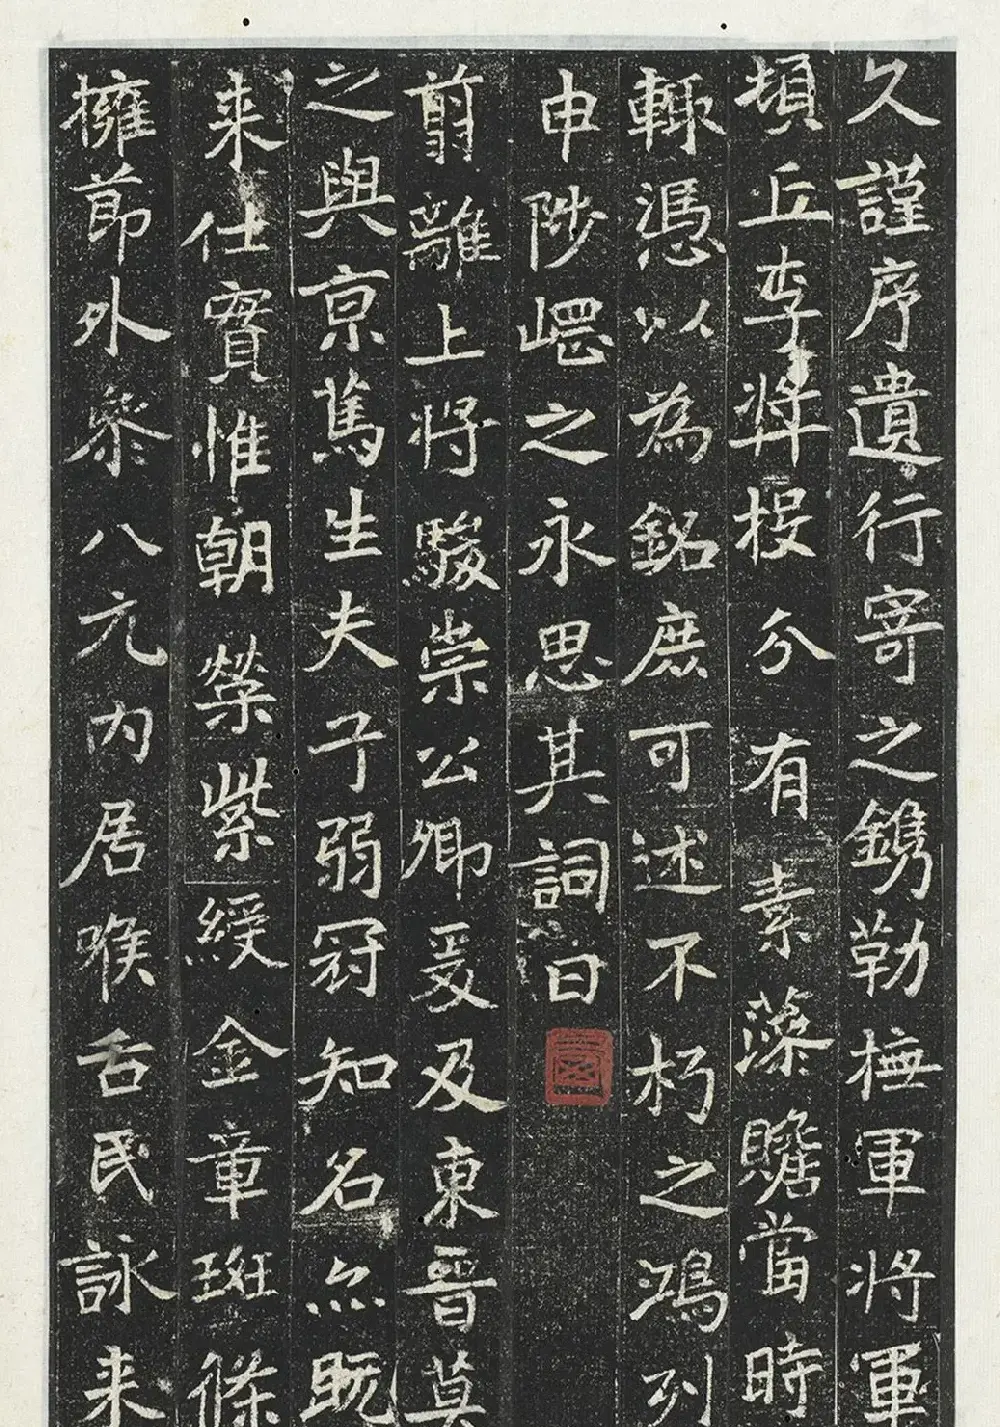 久謹序遺行寄之鐫勒撫軍將軍
頓丘李奬投分有素藻贍當時
輒憑以為銘庶可述不朽之鴻列
申陟岵之永思其詞曰
翦離上將駿崇公卿爰及東晉莫
之與京篤生夫子弱冠知名亦既
来仕實惟朝榮紫綬金章斑條
擁節外參八元内居喉舌民詠来